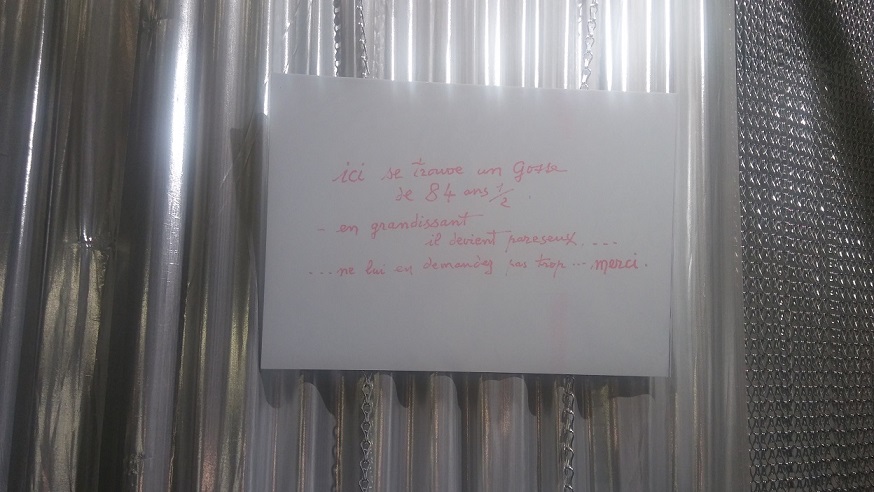 ici se trouve un gosse
de 84 ans 1/2
- en grandissant
il devient pareseux ....
... ne lui en demandez pas trop ... merci.